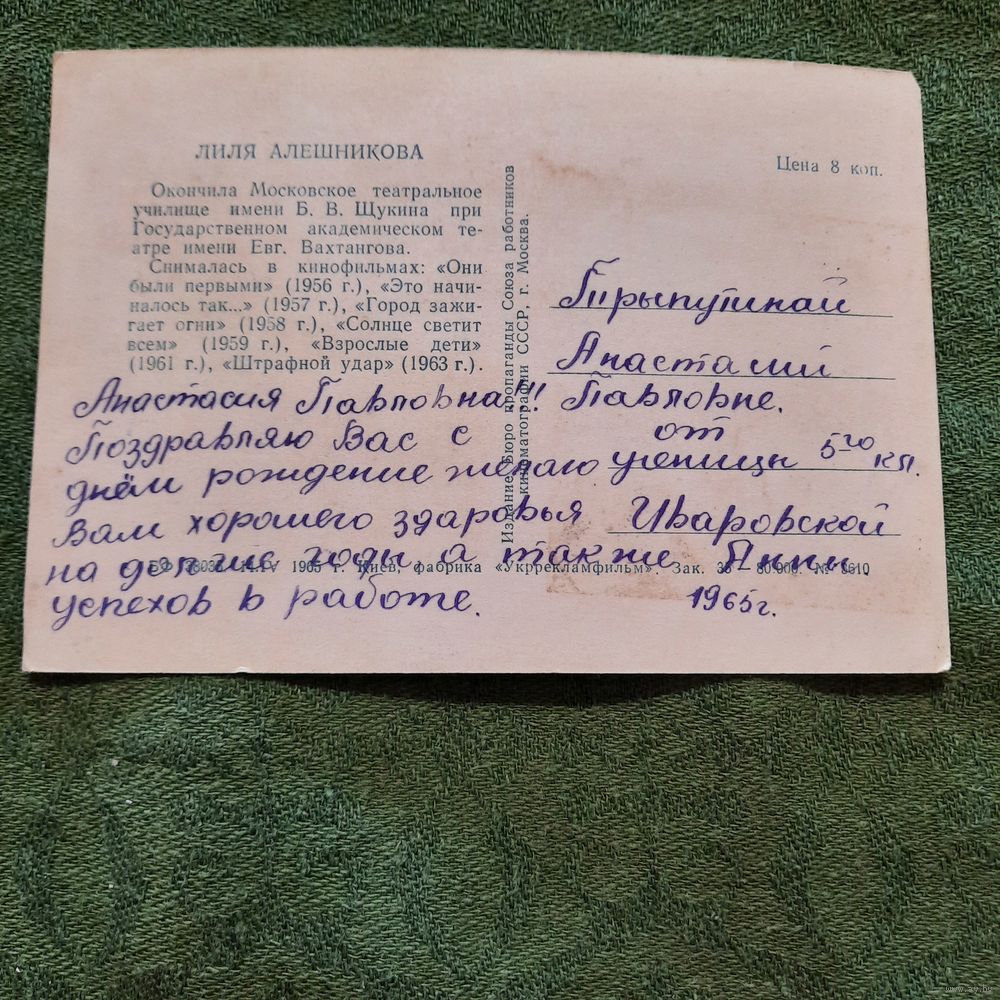 ЛИЛЯ АЛЕШНИКОВА
Окончила Московское театральное
училище имени Б. В. Щукина при
Государственном академическом те-
атре имени Евг. Вахтангова.
Снималась в кинофильмах: «Они
были первыми» (1956 г.), «Это начи-
налось так...» (1957 г.), «Город зажи-
гает огни» (1958 г.), «Солнце светит
всем» (1959 г.), «Взрослые дети»
(1961 г.), «Штрафной удар» (1963 г.).
Анастасия Павловна!!!
Поздравляю Вас с
днём рождение желаю
Вам хорошего здаровья
на долгие годы а также
успехов в работе.
Издание Бюро пропаганды Союза работников
кинематографии СССР, г. Москва.
Цена 8 коп.
Трыпутинай
Анастасии
Павловне.
от
ученицы 5го кл.
Уваровской
Анны.
1965г.
14.IV 1965 г. Киев, фабрика «Укррекламфильм». Зак. 80.000.
www.ay.by